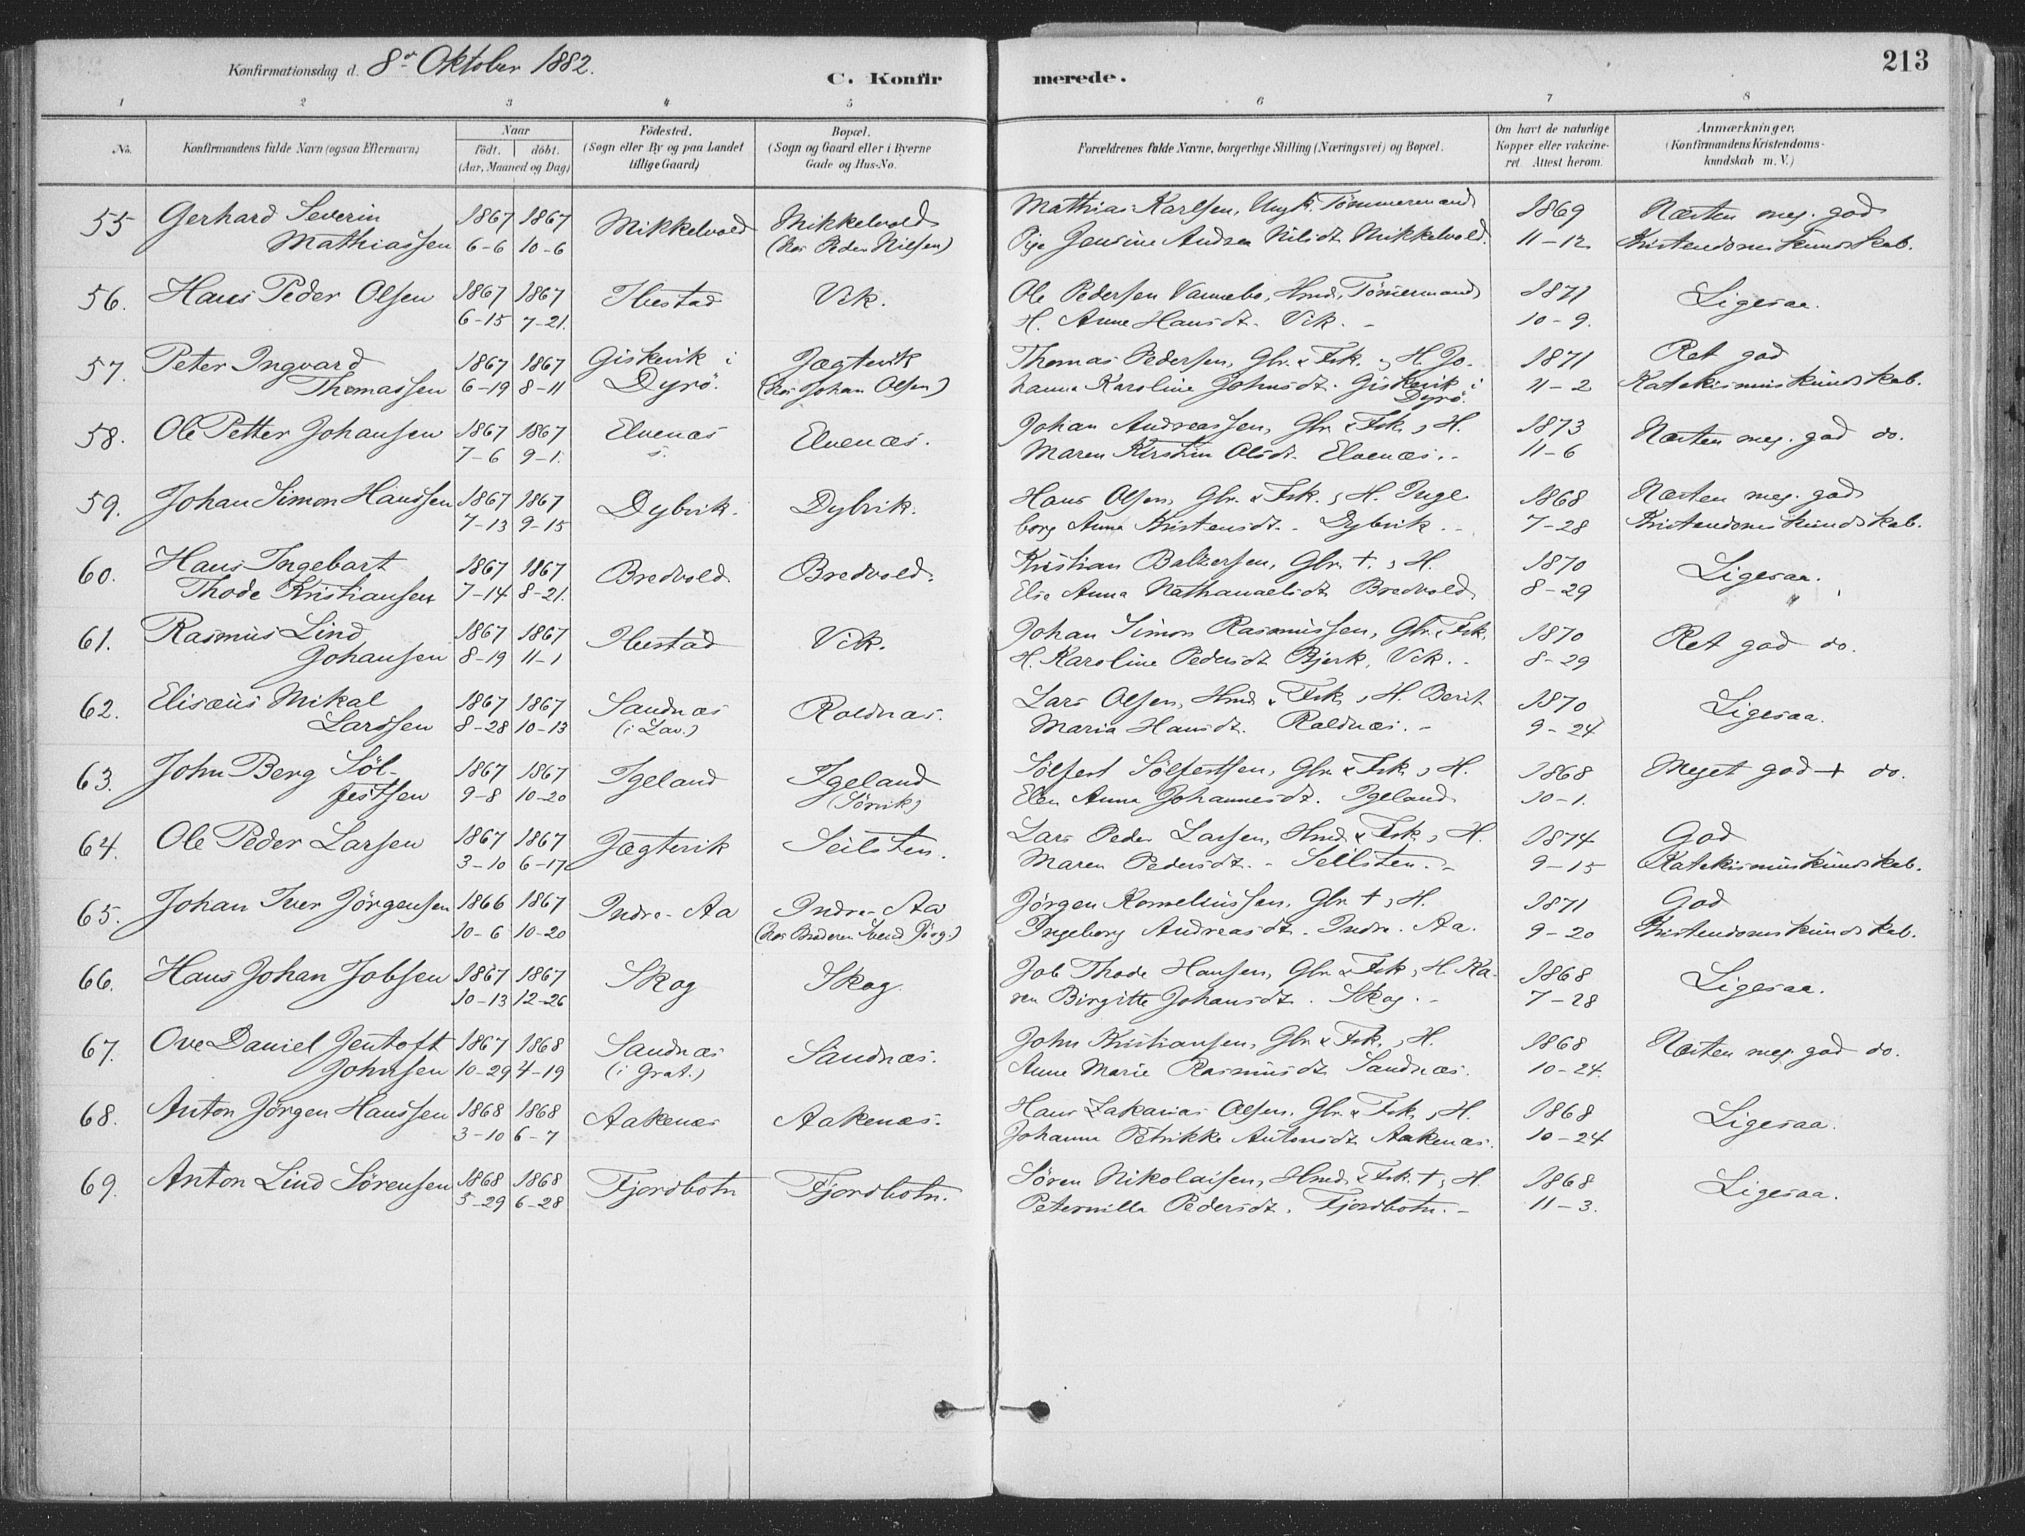 Konfirmationsdag d. 8de Oktober 1882.
C. Konfirmerede.
213
1 2 3 4 5 6 7 8
No.
Konfirmandens fulde Navn (ogsaa Efternavn)
Naar
født. døbt.
(Aar, Maaned og Dag)
Fødested.
(Sogn eller By og paa Landet
tillige Gaard)
Bopæl.
(Sogn og Gaard eller i Byerne
Gade og Hus-No.
Forældrenes fulde Navne, borgerlige Stilling (Næringsvei) og Bopæl.
Om havt de naturlige
Kopper eller vakcine-
ret. Attest herom.
Anmærkninger.
(Konfirmandens Kristendoms-
kundskab m. V.)
55 Gerhard Severin 1867 1867 Mikkelvold Mikkelvold Mathias Karlsen, Ungk. Tømmermand 1869 Næsten meg. god
Mathiassen 6-6 10-6 (hos Peder Nilsen) Pige Jensine Andrea Nilsdt. Mikkelvold. 11-12 Kristendomskundskab.
56. Hans Peder Olsen 1867 1867 Hestad Vik. Ole Pedersen Vannebo, Hmd., Tømmermand 1871 Ligesaa.
6-15 7-21. H. Anne Hansdt. Vik. 10-9.
57. Peter Ingvard 1867 1867 Giskevik i Jægtevik Thomas Pedersen, Gbr. & Fsk., H. Jo- 1871 Ret god
Thomassen 6-19 8-11 Dyrö. (hos Johan Olsen) hanna Karoline Johnsdt. Giskevik i Dyrö. 11-2 Katekismuskundskab.
58. Ole Petter Johansen 1867 1867 Elvenæs Elvenæs. Johan Andreassen, Gbr. & Fsk., H. 1873 Næsten meg. god do.
7-6 9-1. Maren Kirstin Olsdt. Elvenæs. 11-6
59. Johan Simon Hanssen 1867 1867 Dybvik. Dybvik. Hans Olsen, Gbr. & Fsk., H. Inge 1868 Næsten meg. god
7-13 9-15 borg Anna Kristensdt. Dybvik. 7-28 Kristendomskundskab.
60. Hans Ingebart 1867 1867 Bredvold Bredvold. Kristian Baltzersen, Gbr. +, H. 1870 Ligesaa.
Thode Kristiansen 7-14 8-21. Else Anna Nathanaelsdt. Bredvold 8-29
61. Rasmus Lind 1867 1867 Hestad Vik. Johan Simon Rasmussen, Gbr. & Fsk. 1870 Ret god do.
Johansen 8-19 11-1 H. Karoline Pedersdt. Bjerk, Vik. 8-29
62. Elisæus Mikal 1867 1867 Sandnæs Roldnæs. Lars Olsen, Hmd. & Fsk., H. Berit 1870 Ligesaa.
Larssen 8-28 10-13 (i Lav.) Maria Hansdt. Roldnæs. 9-24
63. John Berg Söl- 1867 1867 Igeland Igeland Sölfest Sölfestsen, Gbr. & Fsk., H. 1868 Meget god + do.
festsen 9-8 10-20 (Sörvik) Elen Anna Johannesdt. Igeland 10-1.
64. Ole Peder Larsen 1867 1867 Jægtevik Seilsten. Lars Peder Larsen, Hmd. & Fsk., H. 1874 God
3-10 6-17 Maren Pedersdt. Seilsten. 9-15 Katekismuskundskab.
65. Johan Iver Jörgensen 1866 1867 Indre-Aa Indre-Aa Jörgen Korneliussen, Gbr. +, H. 1871 God
10-6 10-20 (hos Broderen Svend Jörg.) Ingeborg Andreasdt. Indre-Aa. 9-20 Kristendomskundskab.
66. Hans Johan Jobsen 1867 1867 Skog Skog Job Thode Hansen, Gbr. & Fsk., H. Ka- 1868 Ligesaa.
10-13 12-26 ren Birgitte Johansdt. Skog. 7-28
67. Ove Daniel Jentoft 1867 1868 Sandnæs Sandnæs. John Kristiansen, Gbr. & Fsk., H. 1868 Næsten meg. god do.
Johnsen 10-29 4-19 (i Grat.) Anne Marie Rasmusdt. Sandnæs. 10-24.
68. Anton Jörgen Hanssen 1868 1868 Aakenæs Aakenæs. Hans Zakarias Olsen, Gbr. & Fsk., H. 1868 Ligesaa.
3-10 6-7 Johanna Petrikke Antonsdt. Aakenæs. 10-24
69. Anton Lind Sörensen 1868 1868 Fjordbotn Fjordbotn. Sören Nikolaisen, Hmd. & Fsk. +, H. 1868 Ligesaa.
5-29 6-28 Peternilla Pedersdt. Fjordbotn. 11-3.